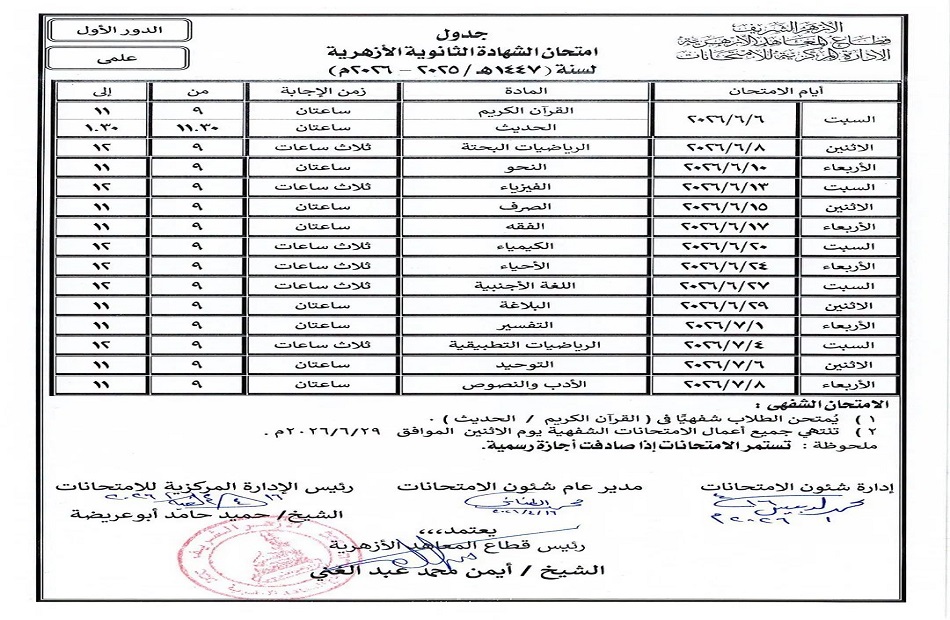 الأزهر الشريف
قطاع المعاهد الأزهرية
الإدارة المركزية للامتحانات
جدول
امتحان الشهادة الثانوية الأزهرية
لسنة (١٤٤٧هـ / ٢٠٢٥ - ٢٠٢٦م)
الدور الأول
علمى
أيام الامتحان المادة زمن الإجابة من إلى
السبت ٢٠٢٦/٦/٦ القرآن الكريم ساعتان ٩ ١١
الحديث ساعتان ١١.٣٠ ١.٣٠
الاثنين ٢٠٢٦/٦/٨ الرياضيات البحتة ثلاث ساعات ٩ ١٢
الأربعاء ٢٠٢٦/٦/١٠ النحو ساعتان ٩ ١١
السبت ٢٠٢٦/٦/١٣ الفيزياء ثلاث ساعات ٩ ١٢
الاثنين ٢٠٢٦/٦/١٥ الصرف ساعتان ٩ ١١
الأربعاء ٢٠٢٦/٦/١٧ الفقه ساعتان ٩ ١١
السبت ٢٠٢٦/٦/٢٠ الكيمياء ثلاث ساعات ٩ ١٢
الأربعاء ٢٠٢٦/٦/٢٤ الأحياء ثلاث ساعات ٩ ١٢
السبت ٢٠٢٦/٦/٢٧ اللغة الأجنبية ثلاث ساعات ٩ ١٢
الاثنين ٢٠٢٦/٦/٢٩ البلاغة ساعتان ٩ ١١
الأربعاء ٢٠٢٦/٧/١ التفسير ساعتان ٩ ١١
السبت ٢٠٢٦/٧/٤ الرياضيات التطبيقية ثلاث ساعات ٩ ١٢
الاثنين ٢٠٢٦/٧/٦ التوحيد ساعتان ٩ ١١
الأربعاء ٢٠٢٦/٧/٨ الأدب والنصوص ساعتان ٩ ١١
الامتحان الشفهى :
١ ) يُمتحن الطلاب شفهيًا فى ( القرآن الكريم / الحديث ) .
٢ ) تنتهي جميع أعمال الامتحانات الشفهية يوم الاثنين الموافق ٢٠٢٦/٦/٢٩م .
ملحوظة : تستمر الامتحانات إذا صادفت أجازة رسمية.
إدارة شئون الامتحانات
مدير عام شئون الامتحانات
٢٠٢٦/٤/١٦
رئيس الإدارة المركزية للامتحانات
الشيخ/ حميد حامد أبوعريضة
يعتمد،،،
رئيس قطاع المعاهد الأزهرية
الشيخ / أيمن محمد عبد الغني